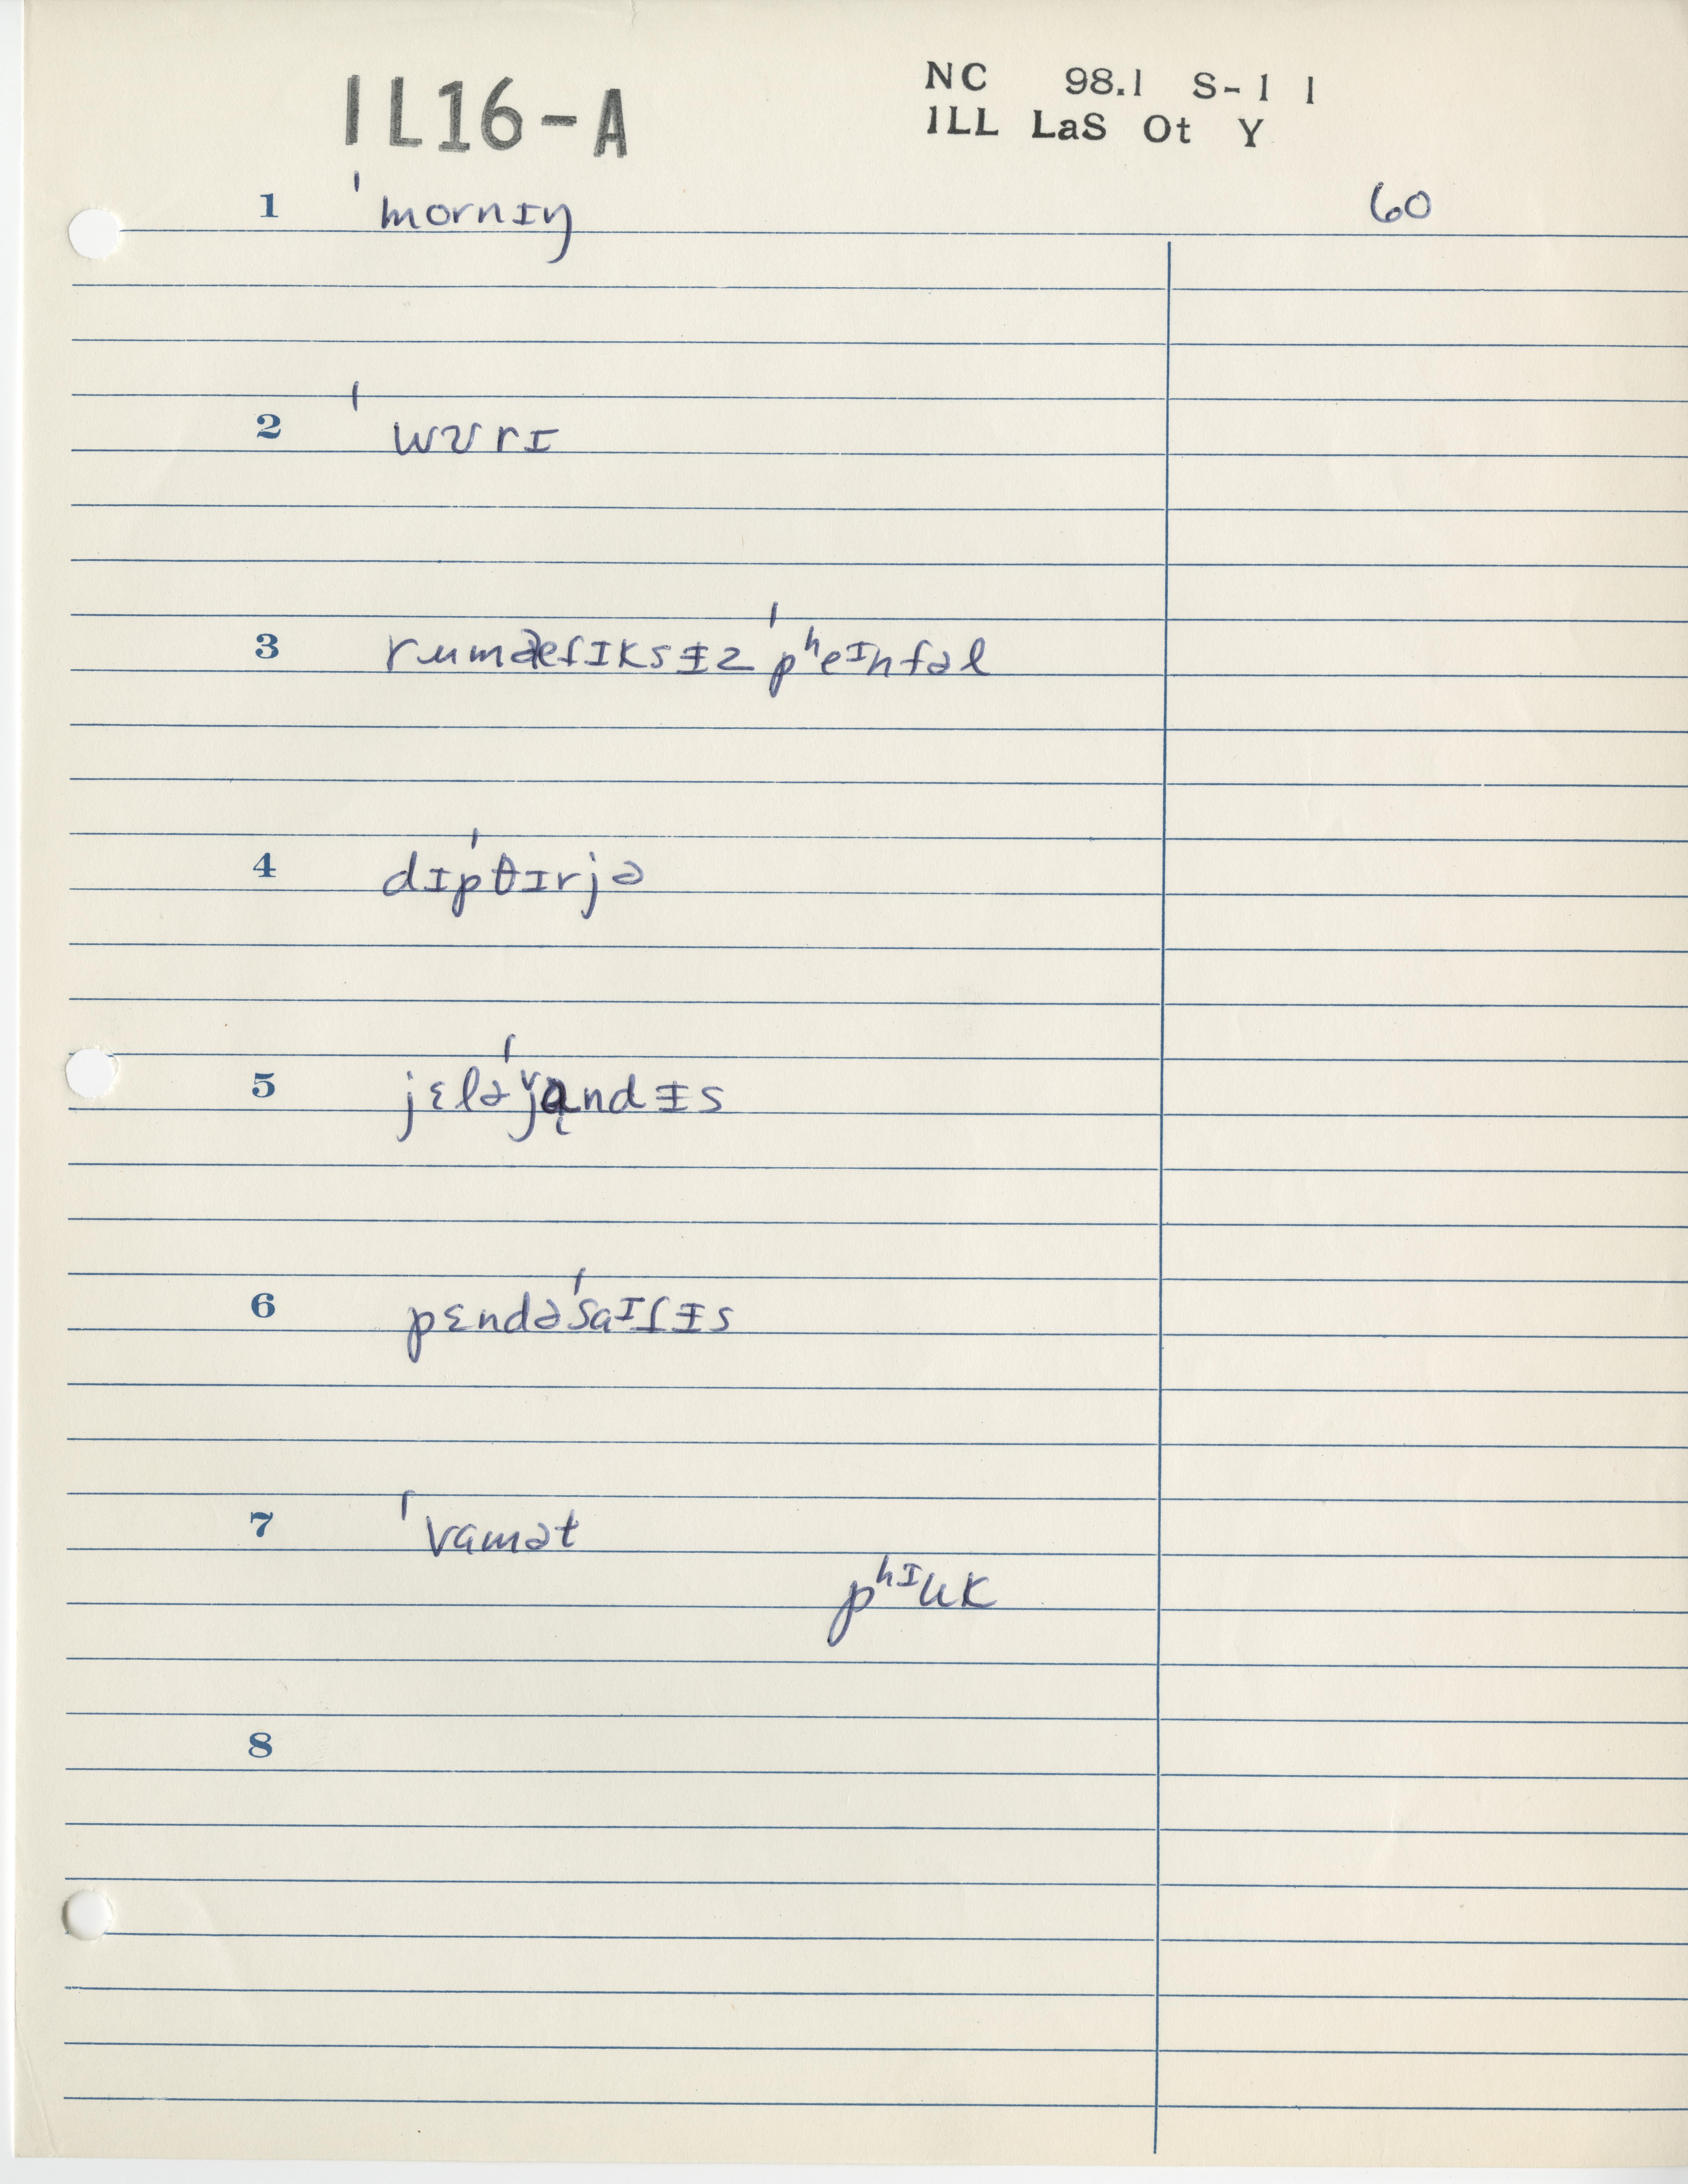 IL16-A
NC 98.1 S-1 1
ILL LaS Ot Y
60
1 ˈmornɪŋ
2 ˈwʊrɪ
3 rumətɪksɨz ˈpʰeᶦnfəl
4 dɪpˈθɪrjə
5 jɛləˈjɑndɨs
6 pɛndəˈsaᶦtɨs
7 ˈvamət
pʰᶦuk
8